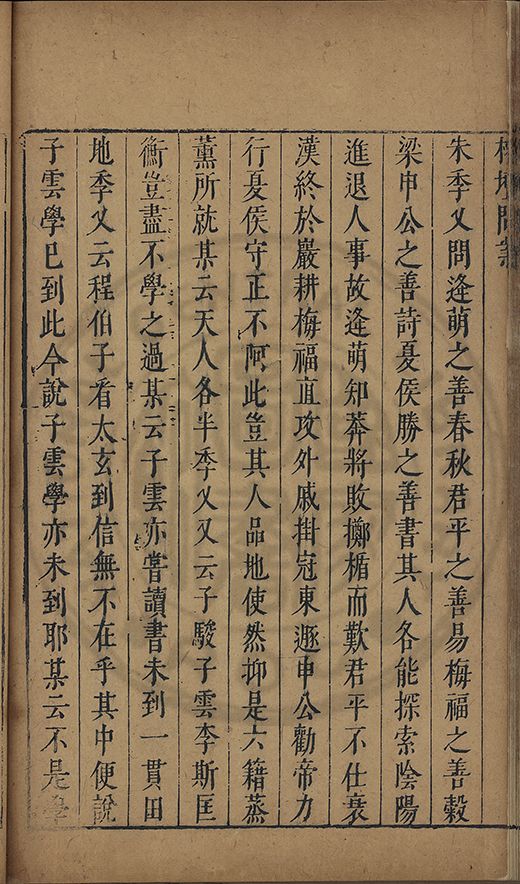 榕壇問業
朱季乂問逄萌之善春秋君平之善易梅福之善穀
梁申公之善詩夏侯勝之善書其人各能探索陰陽
進退人事故逄萌知莽將敗擲楯而歎君平不仕衰
漢終於嚴耕梅福直攻外戚掛冠東遯申公勸帝力
行夏侯守正不阿此豈其人品地使然抑是六籍蒸
薰所就某云天人各半季乂又云子駿子雲李斯匡
衡豈盡不學之過某云子雲亦嘗讀書未到一貫田
地季乂云程伯子看太玄到信無不在乎其中便說
子雲學已到此今說子雲學亦未到耶某云不是學